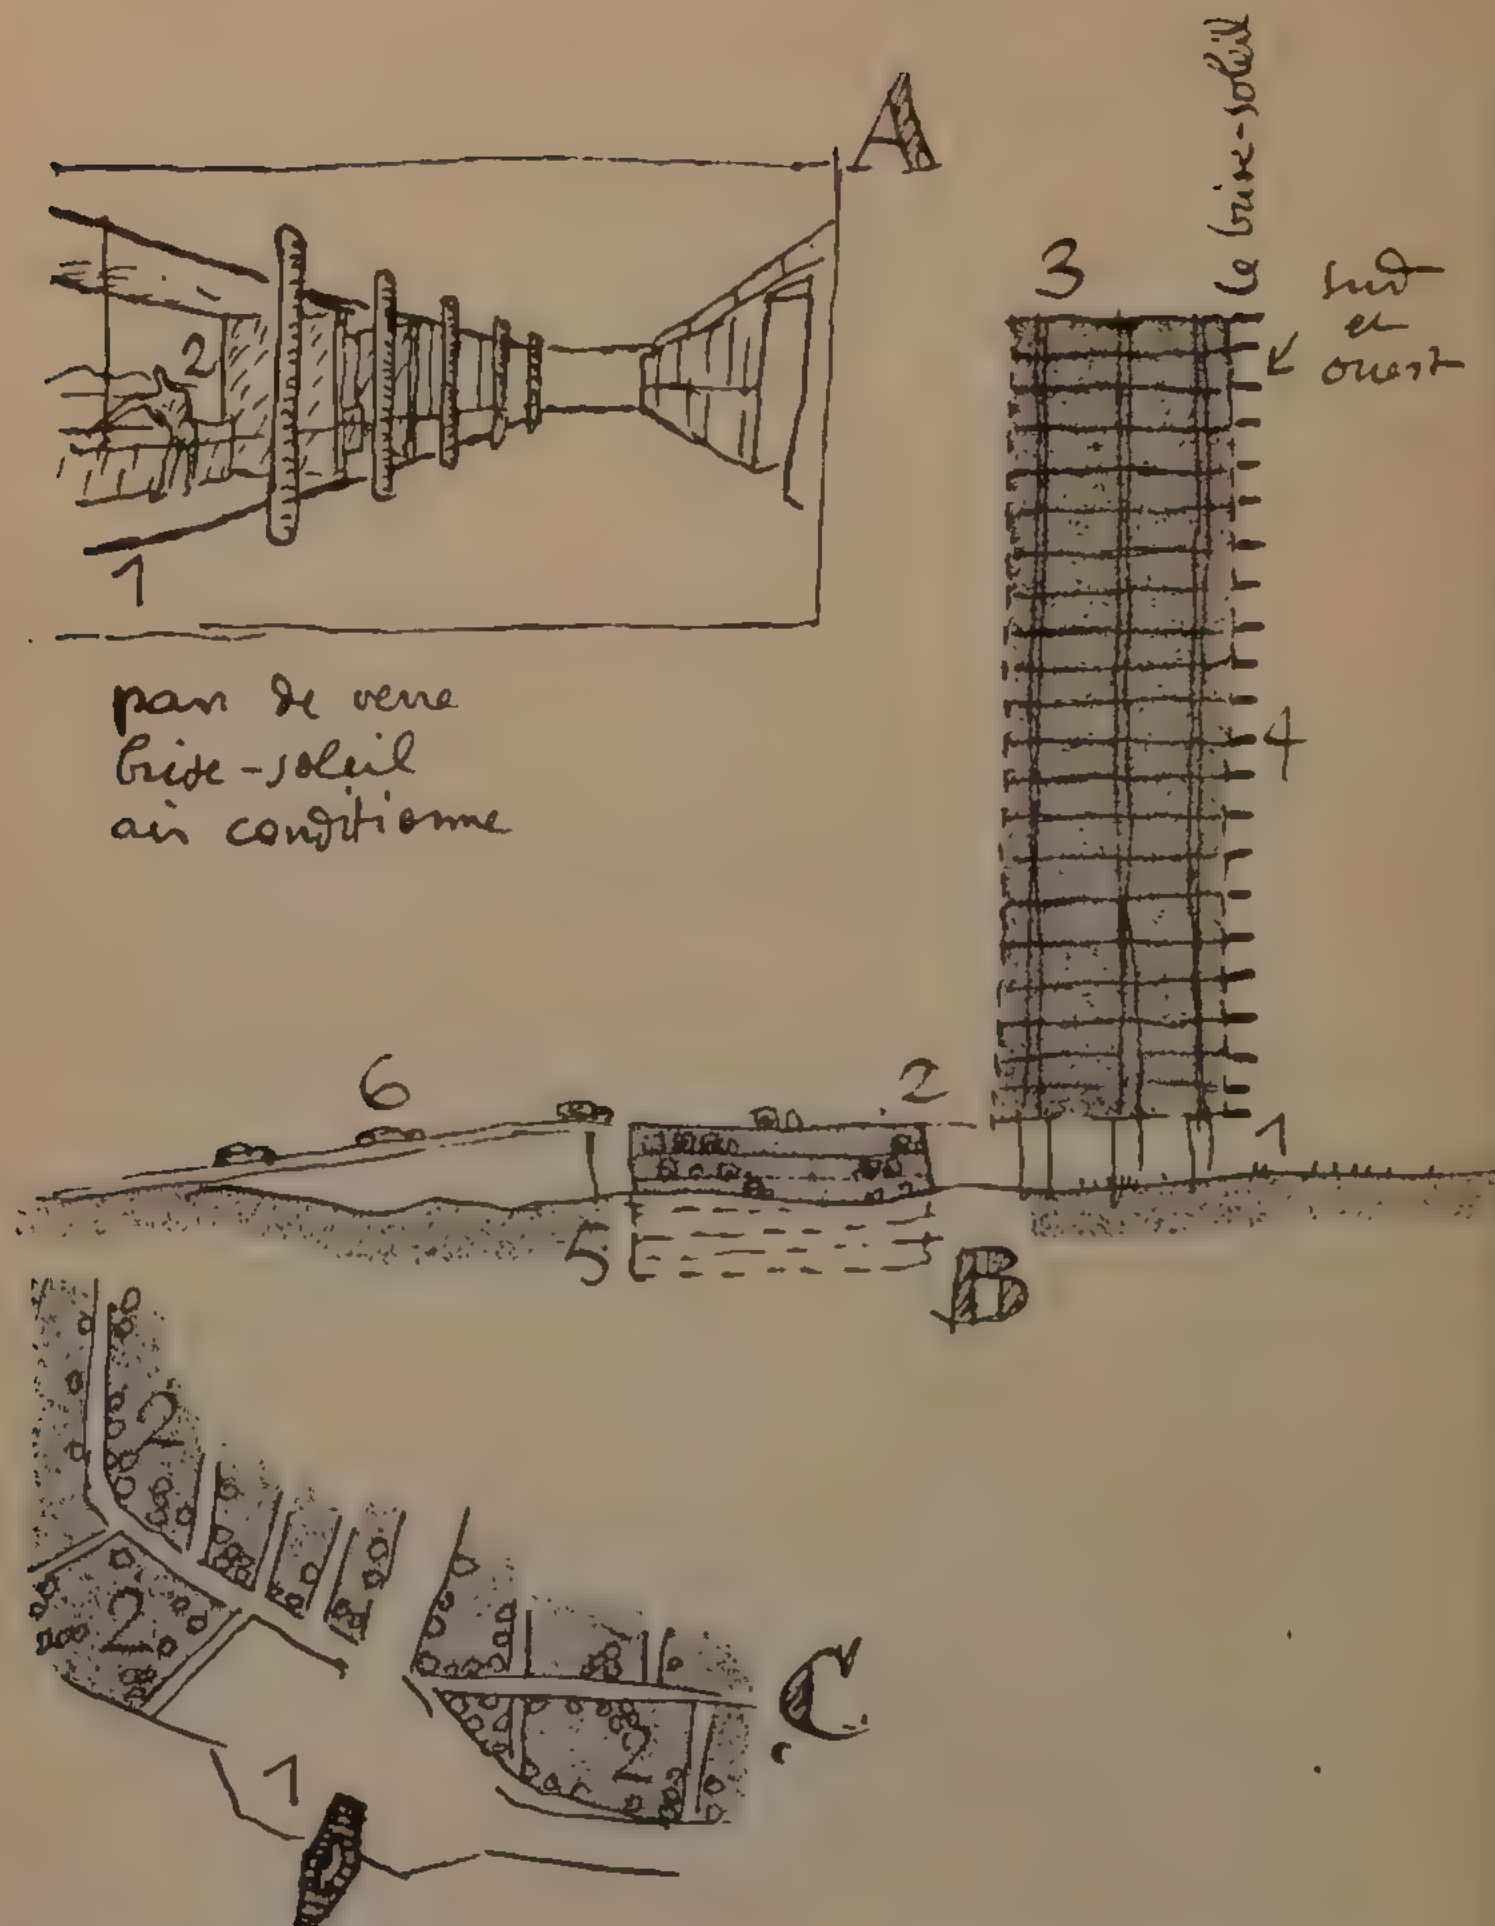 A
1
2
pan de verre
brise-soleil
air conditionne
le brise-soleil
sud
et
ouest
3
4
6
2
1
5
B
2
2
2
1
C